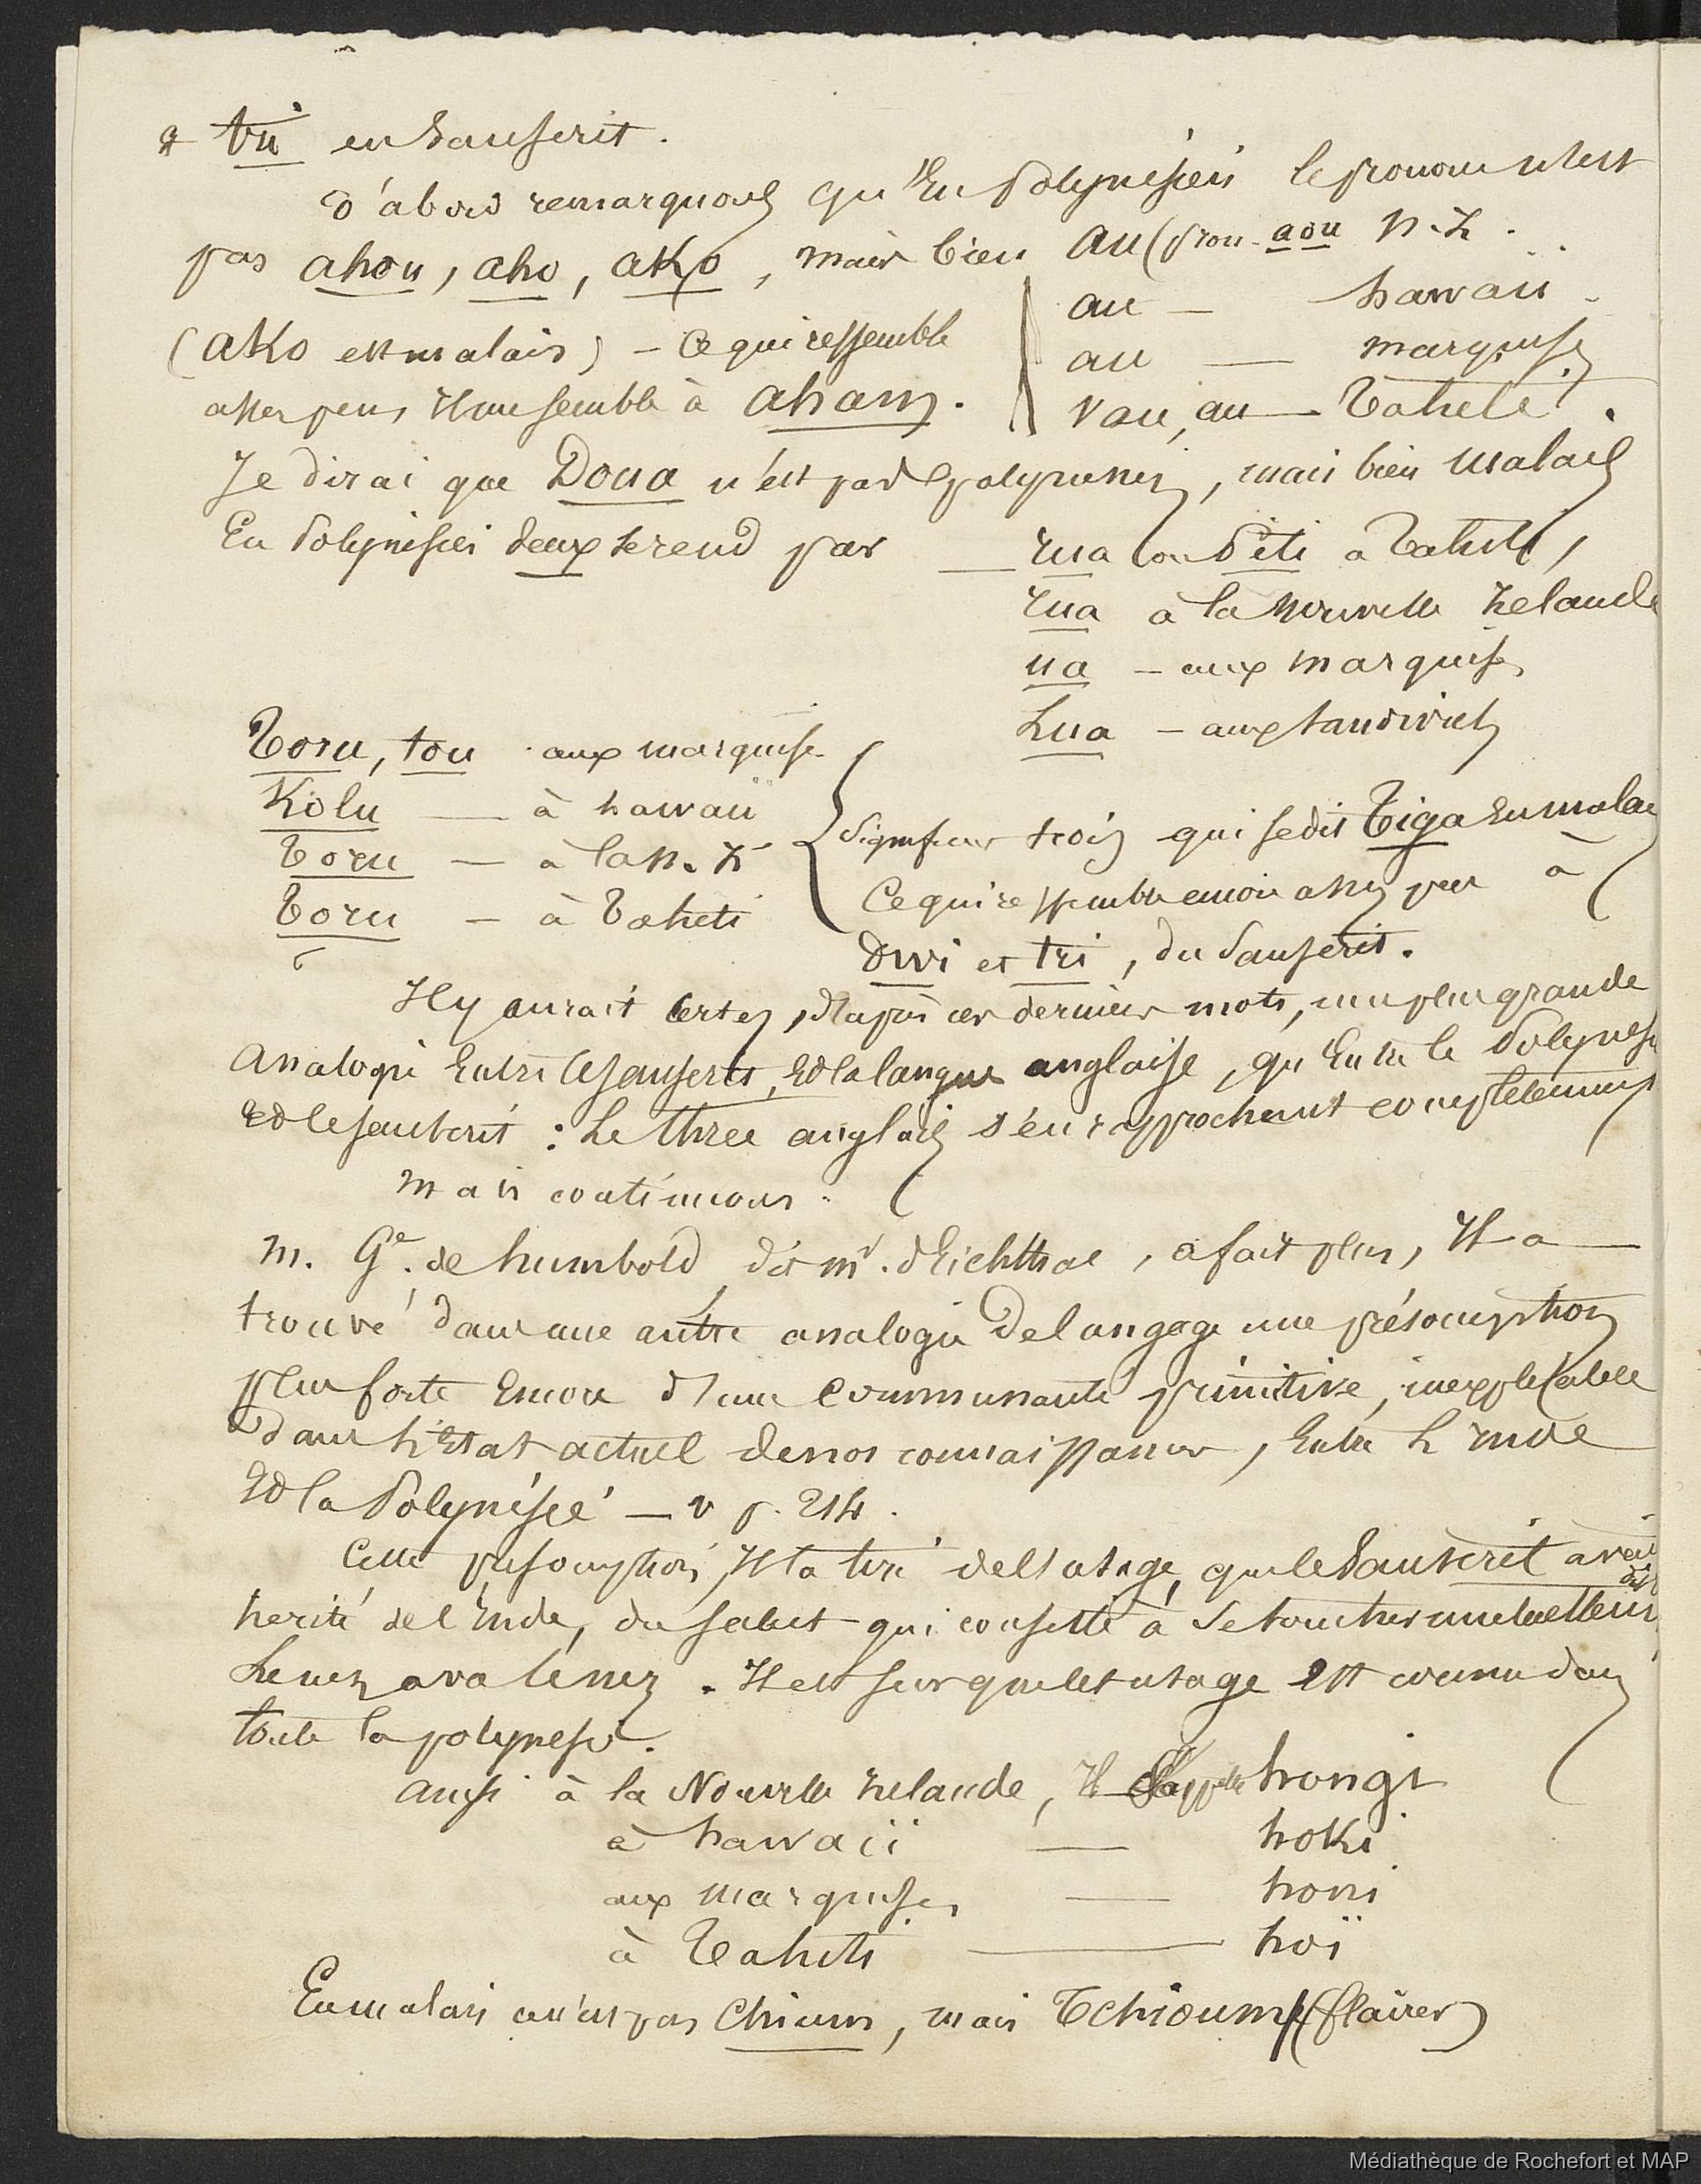 & tri en Sanscrit.
D'abord remarquons qu'En Polynésien le pronom n'est
pas ahou, aho, ako, mais bien au (pron. aou N.Z.
au — hawaii.
(ako est malais) – Ce qui ressemble
au — marquises
assez peu, il me semble à aham.
vau, au — Tahiti.
Je dirai que Doua n'est pas polynesien, mais bien malais
En Polynésien deux se rend par — rua ou Piti à Tahiti,
rua à la Nouvelle Zelande
ua – aux marquises
Lua – aux Sandwich
Toru, tou aux marquises
Kolu — à hawaii
Toru — à la N. Z
Toru — à Taheti
Signifient trois qui se dit Tiga en malais
Ce qui ressemble encore assez peu à
Dwi et tri, du Sanscrit.
Il y aurait certes, d'après ces derniers mots, une plus grande
analogie Entre le sanscrit, Et la langue anglaise, qu'Entre le Polynesien
Et le sanscrit : Le three anglais s'en rapprochant complètement
mais continuons.
M. Ge. de humbold dit mr. d'Eichthal, a fait plus, Il a
trouvé dans une autre analogie De langage une présomption
plus forte Encore d'une communauté primitive, inexplicable
dans l'Etat actuel de nos connaissances, Entre L'Inde
Et la Polynésie — v p. 214.
Cette presomption, Il la tire de l'usage, que le Sanscrit avait dit
herité de l'Inde, du salut qui consiste à Se toucher mutuellement
Le nez avec le nez. Il est sur que cet usage Est connu dans
toute la polynesie.
Aussi à la Nouvelle Zelande, Il s'appelle hongi
à hawaii — hoki
aux marquises — honi
à Tahiti — hoï
En malais ce n'est pas Chium, mais Tchioum (flairer)
Médiathèque de Rochefort et MAP